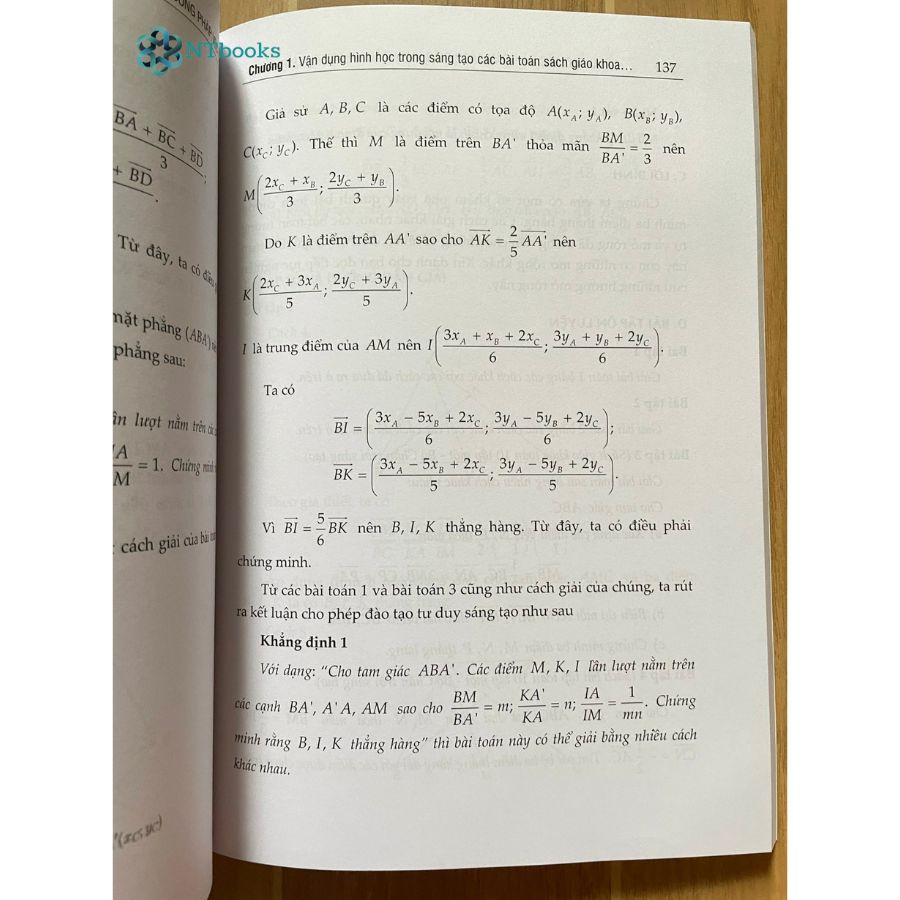 NTbooks
Chương 1. Vận dụng hình học trong sáng tạo các bài toán sách giáo khoa... 137
Giả sử A, B, C là các điểm có tọa độ A(x_A; y_A), B(x_B; y_B),
C(x_C; y_C). Thế thì M là điểm trên BA' thỏa mãn BM/BA' = 2/3 nên
M((2x_C + x_B)/3; (2y_C + y_B)/3).
Do K là điểm trên AA' sao cho \overrightarrow{AK} = 2/5 \overrightarrow{AA'} nên
K((2x_C + 3x_A)/5; (2y_C + 3y_A)/5).
I là trung điểm của AM nên I((3x_A + x_B + 2x_C)/6; (3y_A + y_B + 2y_C)/6).
Ta có
\overrightarrow{BI} = ((3x_A − 5x_B + 2x_C)/6; (3y_A − 5y_B + 2y_C)/6);
\overrightarrow{BK} = ((3x_A − 5x_B + 2x_C)/5; (3y_A − 5y_B + 2y_C)/5).
Vì \overrightarrow{BI} = 5/6 \overrightarrow{BK} nên B, I, K thẳng hàng. Từ đây, ta có điều phải
chứng minh.
Từ các bài toán 1 và bài toán 3 cũng như cách giải của chúng, ta rút
ra kết luận cho phép đào tạo tư duy sáng tạo như sau
Khẳng định 1
Với dạng: “Cho tam giác ABA'. Các điểm M, K, I lần lượt nằm trên
các cạnh BA', A'A, AM sao cho BM/BA' = m; KA'/KA = n; IA/IM = 1/mn. Chứng
minh rằng B, I, K thẳng hàng” thì bài toán này có thể giải bằng nhiều cách
khác nhau.
\overrightarrow{BA} + \overrightarrow{BC} + \overrightarrow{BD}
3 ;
+ \overrightarrow{BD}
.
Từ đây, ta có điều
mặt phẳng (ABA')
phẳng sau:
lần lượt nằm trên các
IA/M = 1. Chứng minh
cách giải của bài